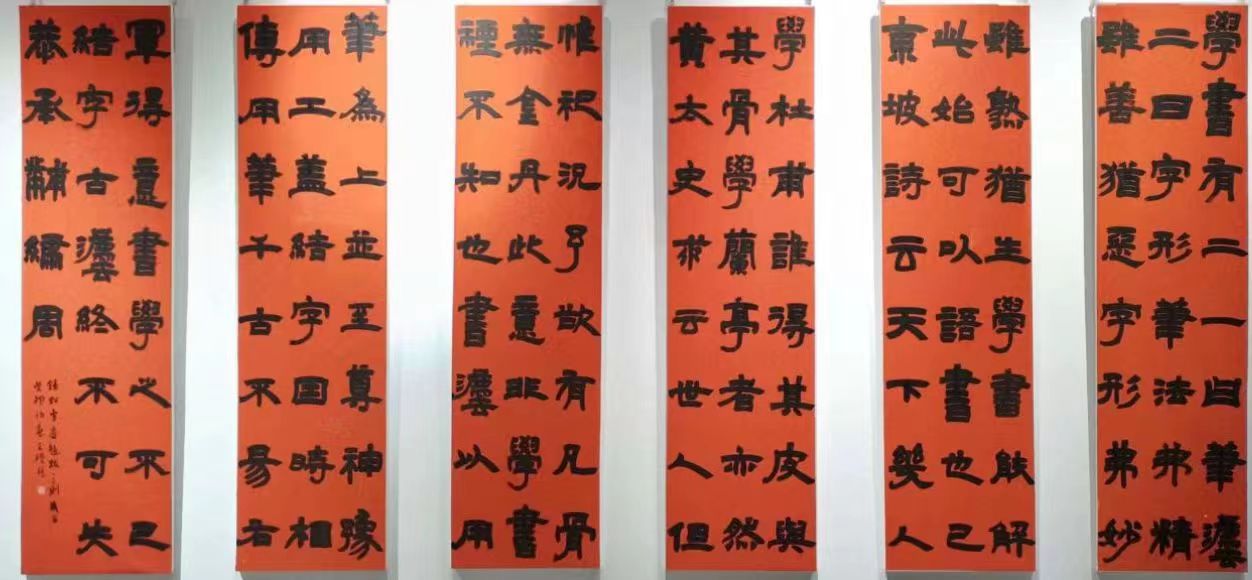 學書有二一曰筆灋
二曰字形筆法弗精
雖善猶惡字形弗妙
雖熟猶生學書能解
此始可以語書也已
東坡詩云天下幾人
學杜甫誰得其皮與
其骨學蘭亭者亦然
黃太史亦云世人但
惟祀況乃欲有凡骨
無金丹此意非學書
禋不知也書灋以用
筆為上並至尊神豫
用工蓋結字因時相
傳用筆千古不易右
軍得意書學之不已
結字古灋終不可失
恭承黼繡周